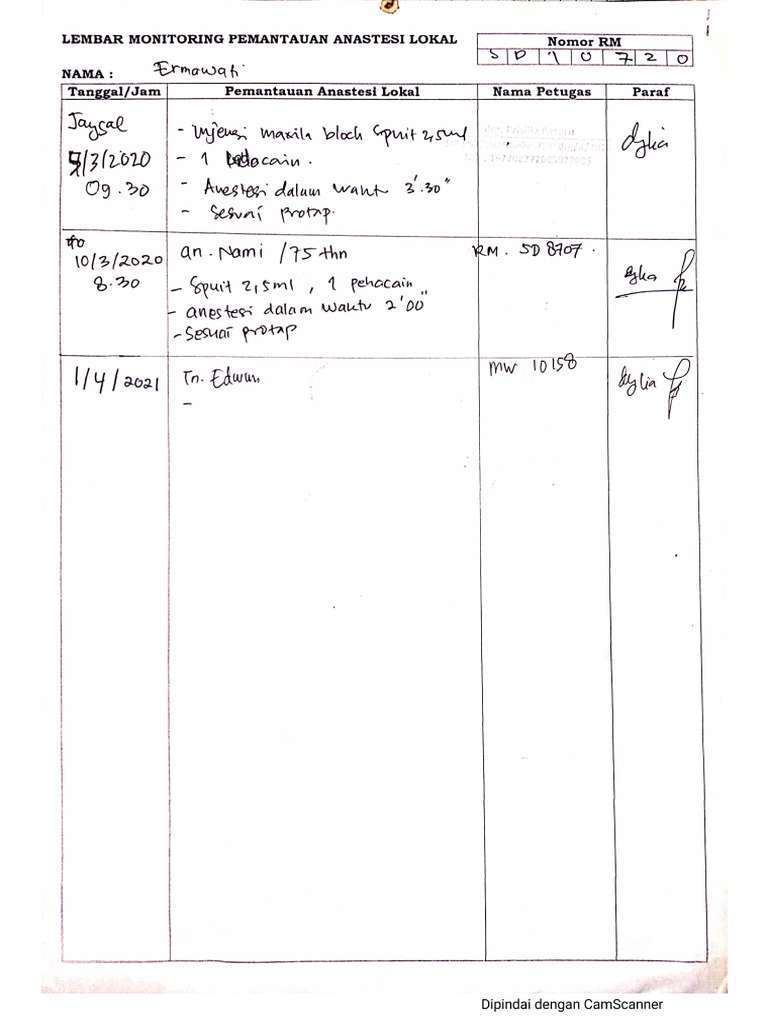 LEMBAR MONITORING PEMANTAUAN ANASTESI LOKAL
Nomor RM
S D 1 0 7 2 0
NAMA : Ermawati
Tanggal/Jam Pemantauan Anastesi Lokal Nama Petugas Paraf
Jaysal
5/3/2020
09.30
- Injeksi maxila block Spuit 2,5ml
- 1 pehacain.
- Anestesi dalam waktu 3'.30"
- Sesuai protap.
dylia
10/3/2020
8.30
an. Nami /75 thn
RM. SD 8707.
- Spuit 2,5ml, 1 pehacain
- anestesi dalam waktu 2'00"
- Sesuai protap
1/4/2021
Tn. Edwin
-
MW 10158
dylia
Dipindai dengan CamScanner